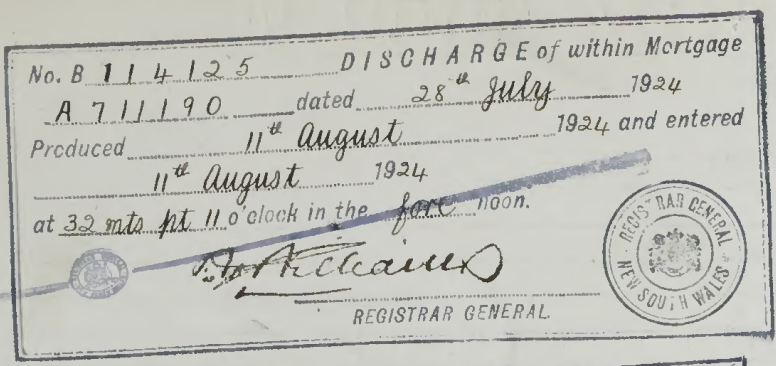 No. B 114125 DISCHARGE of within Mortgage
A 711190 dated 28th July 1924
Produced 11th August 1924 and entered
11th August 1924
at 32 mts pt 11 o'clock in the fore noon.
REGISTRAR GENERAL
REGISTRAR GENERAL
NEW SOUTH WALES